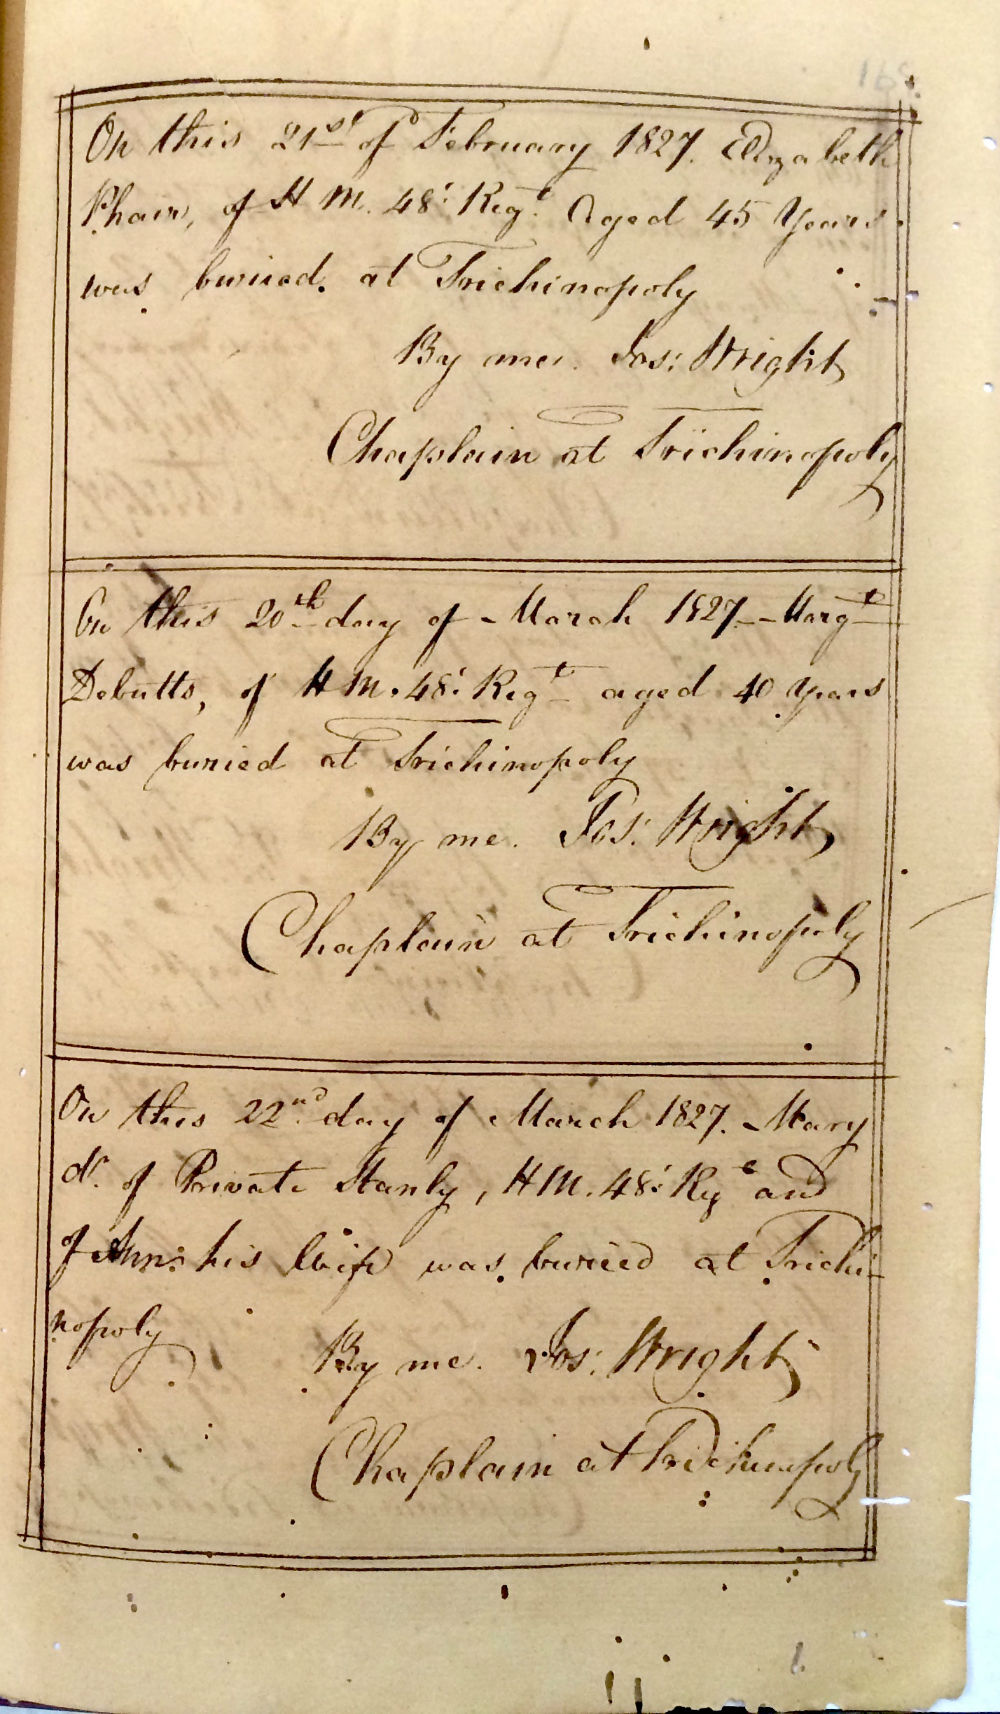 On this 21st of February 1827. Elizabeth
Phair, of H M. 48: Regt. Aged 45 Years.
was buried. at Trichinopoly
By me. Jos: Wright
Chaplain at Trichinopoly
On this 20th day of March 1827 - Margt
Debutts, of H M. 48: Regt aged 40 Years
was buried at Trichinopoly
By me. Jos: Wright
Chaplain at Trichinopoly
On this 22nd day of March 1827. Mary
dr. of Private Stanly, H M. 48: Regt and
of Ann: his Wife was buried at Trichi-
nopoly
By me. Jos: Wright
Chaplain at Trichinopoly